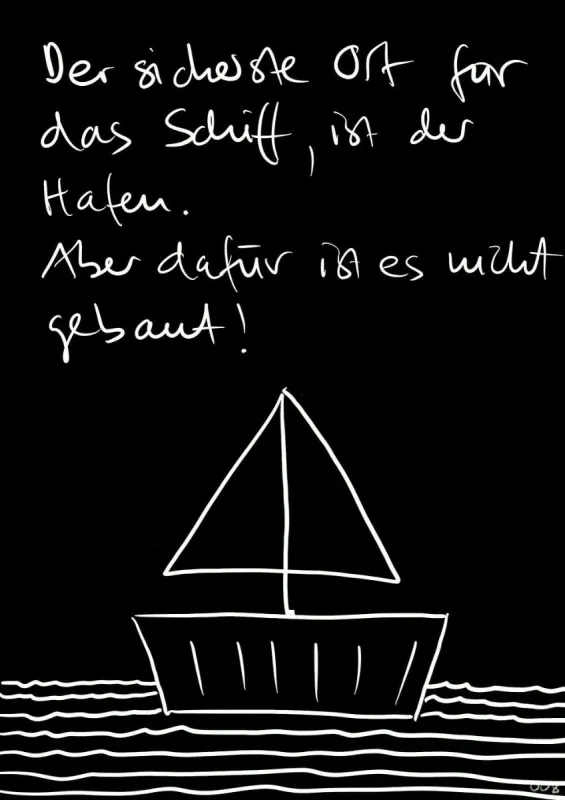 Der sicherste Ort für
das Schiff, ist der
Hafen.
Aber dafür ist es nicht
gebaut!